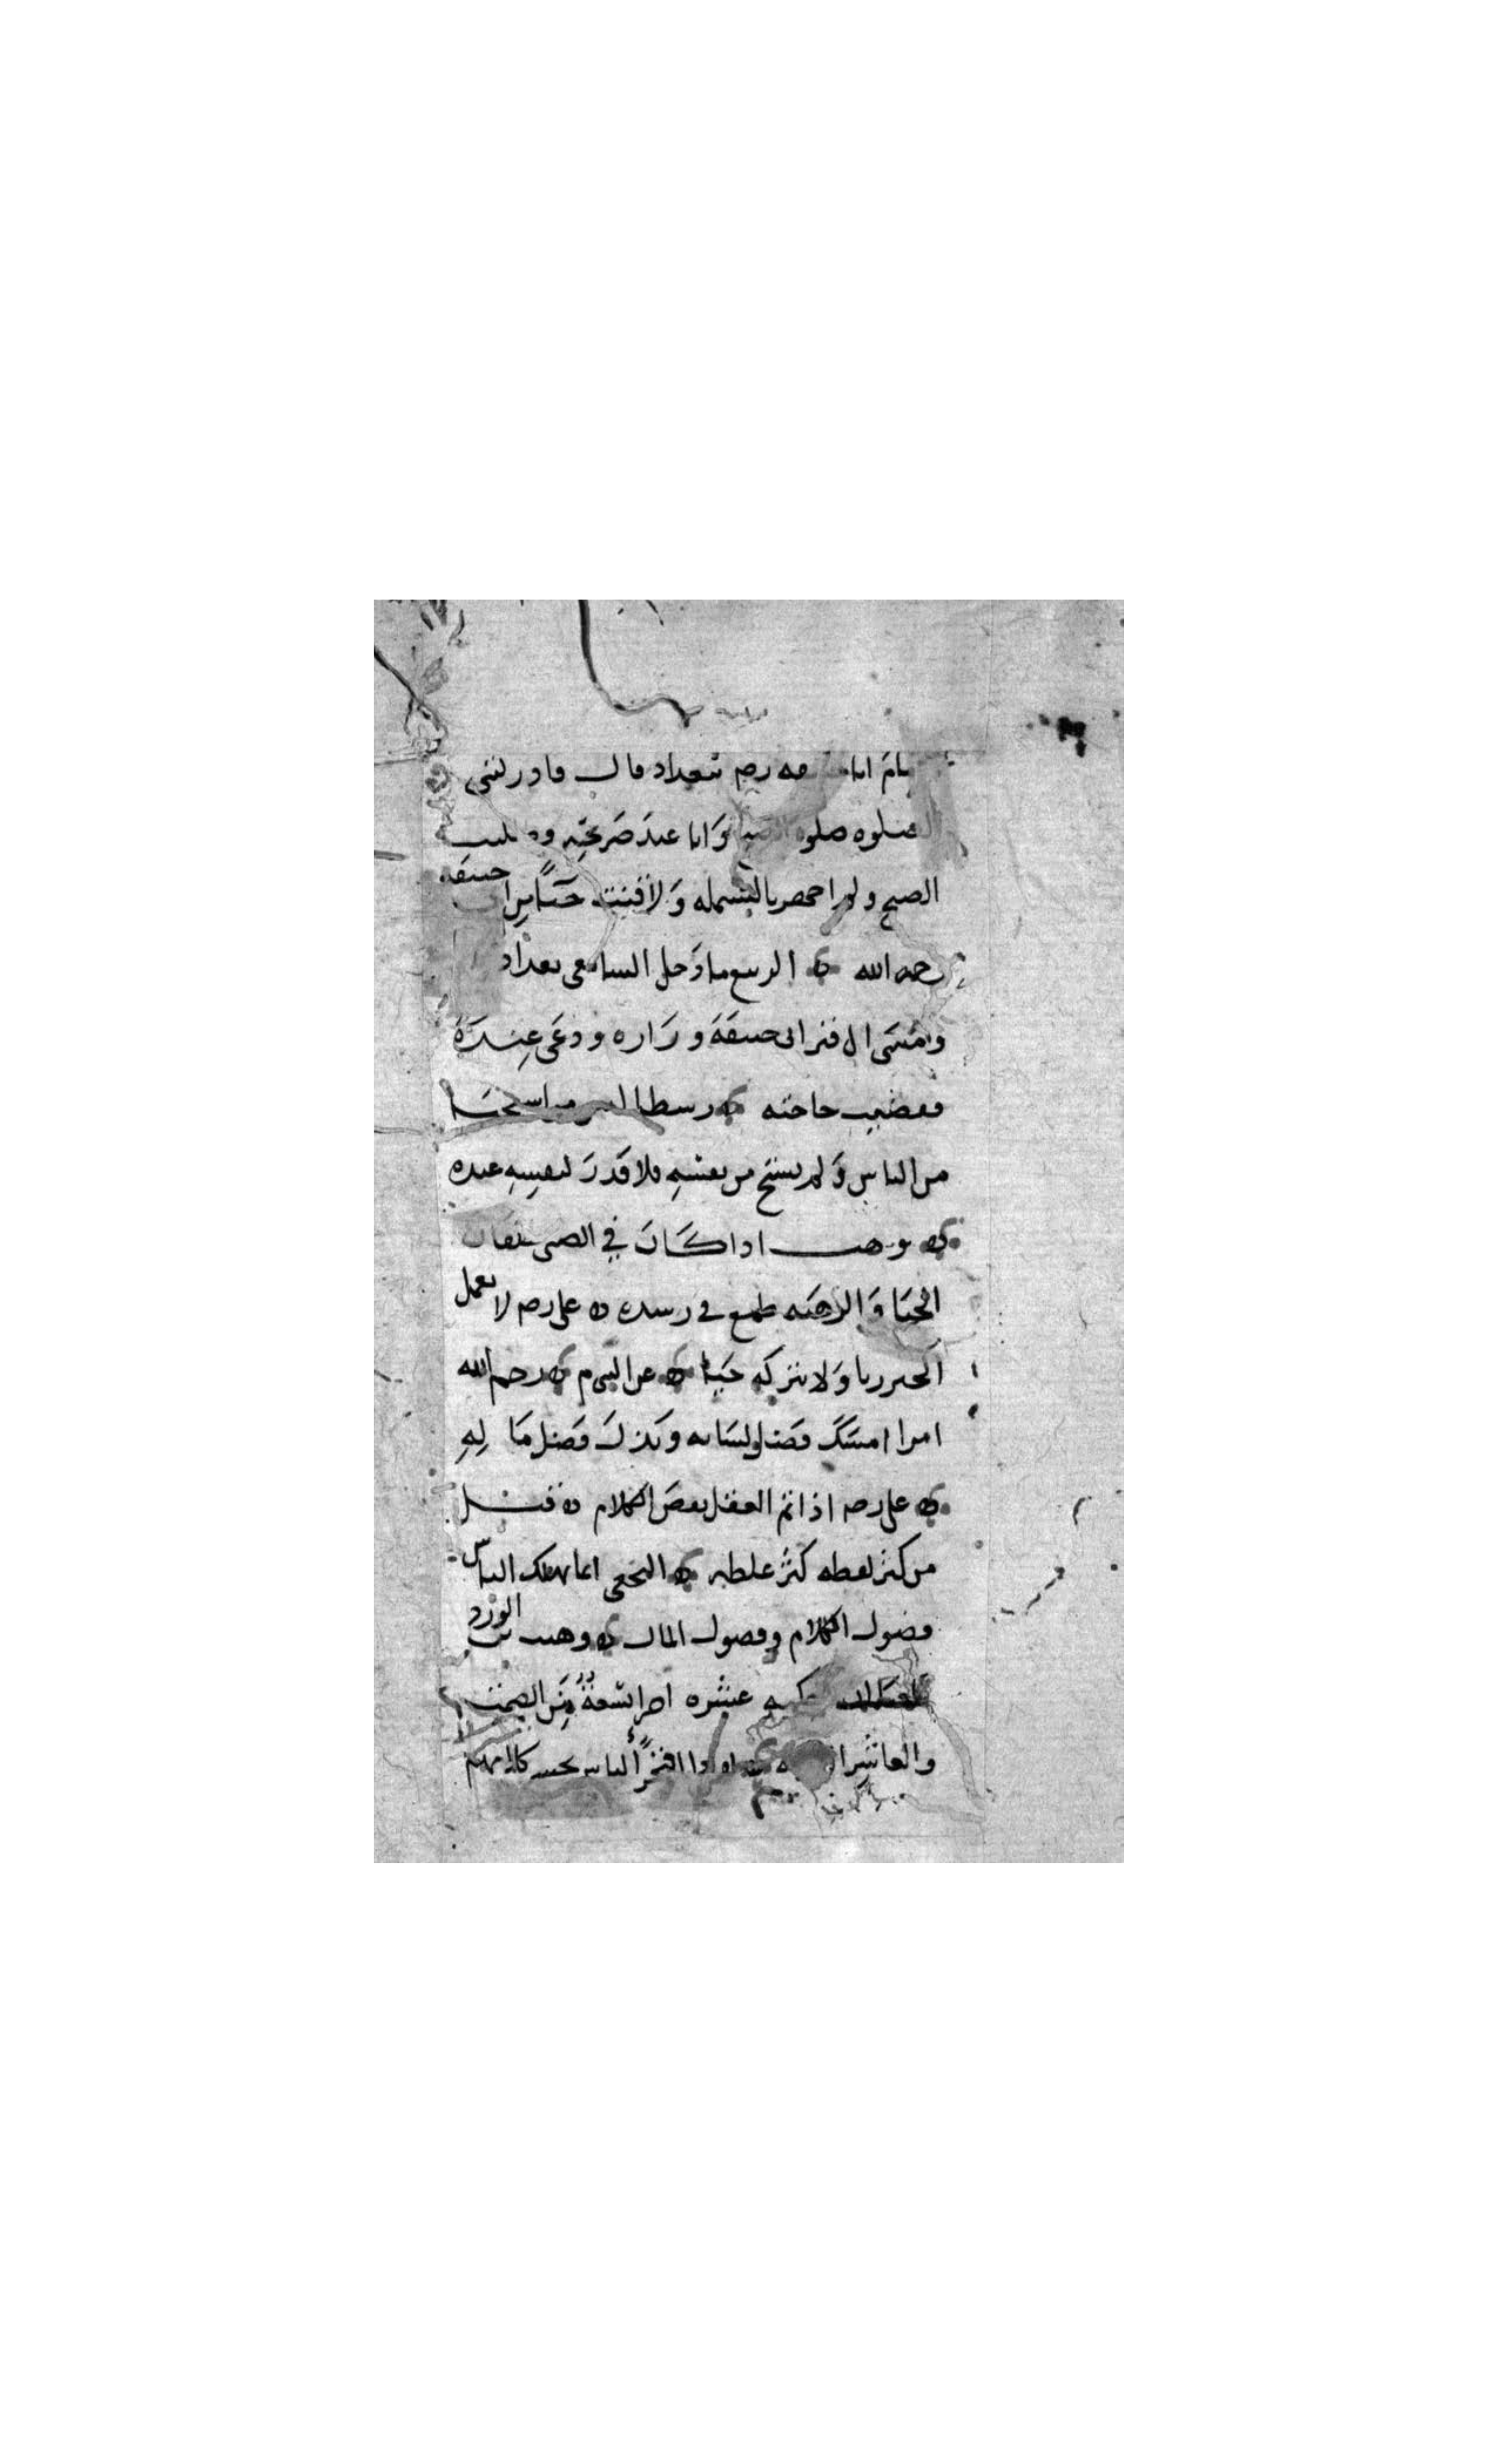 رصه ببغداد قال فادركتني
الصلوه صلوه الصبح وانا عند ضريحه وصليت
الصبح ولم اجهر بالبسمله ولا قنت حياً من ابي حنيفه
رحمه الله ه الربيع ما دخل الشافعي بغداد
ومشى الى قبر ابي حنيفة وزاره ودعى عنده
فقضيت حاجته ه رسطاليس من استحيا
من الناس ولم يستح من نفسه فلا قدر لنفسه عنده
ه وهب اذا كان في الصبي خلقان
الحيا والرهبه طمع في رشده ه على رصه لا يعمل
الخير ريا ولا يتركه حيا ه عن النبي م ه رحم الله
امرا امسك فضل لسانه وبذل فضل ماله
ه على رصه اذا تم العقل نقص الكلام ه قيل
من كثر لغطه كثر غلطه ه النخعي انما يهلك الناس
فضول الكلام وفضول المال ه وهب بن الورد
عشره اجزا تسعة من الصمت
والعاشر اذا افتخر الناس بحسن كلامهم